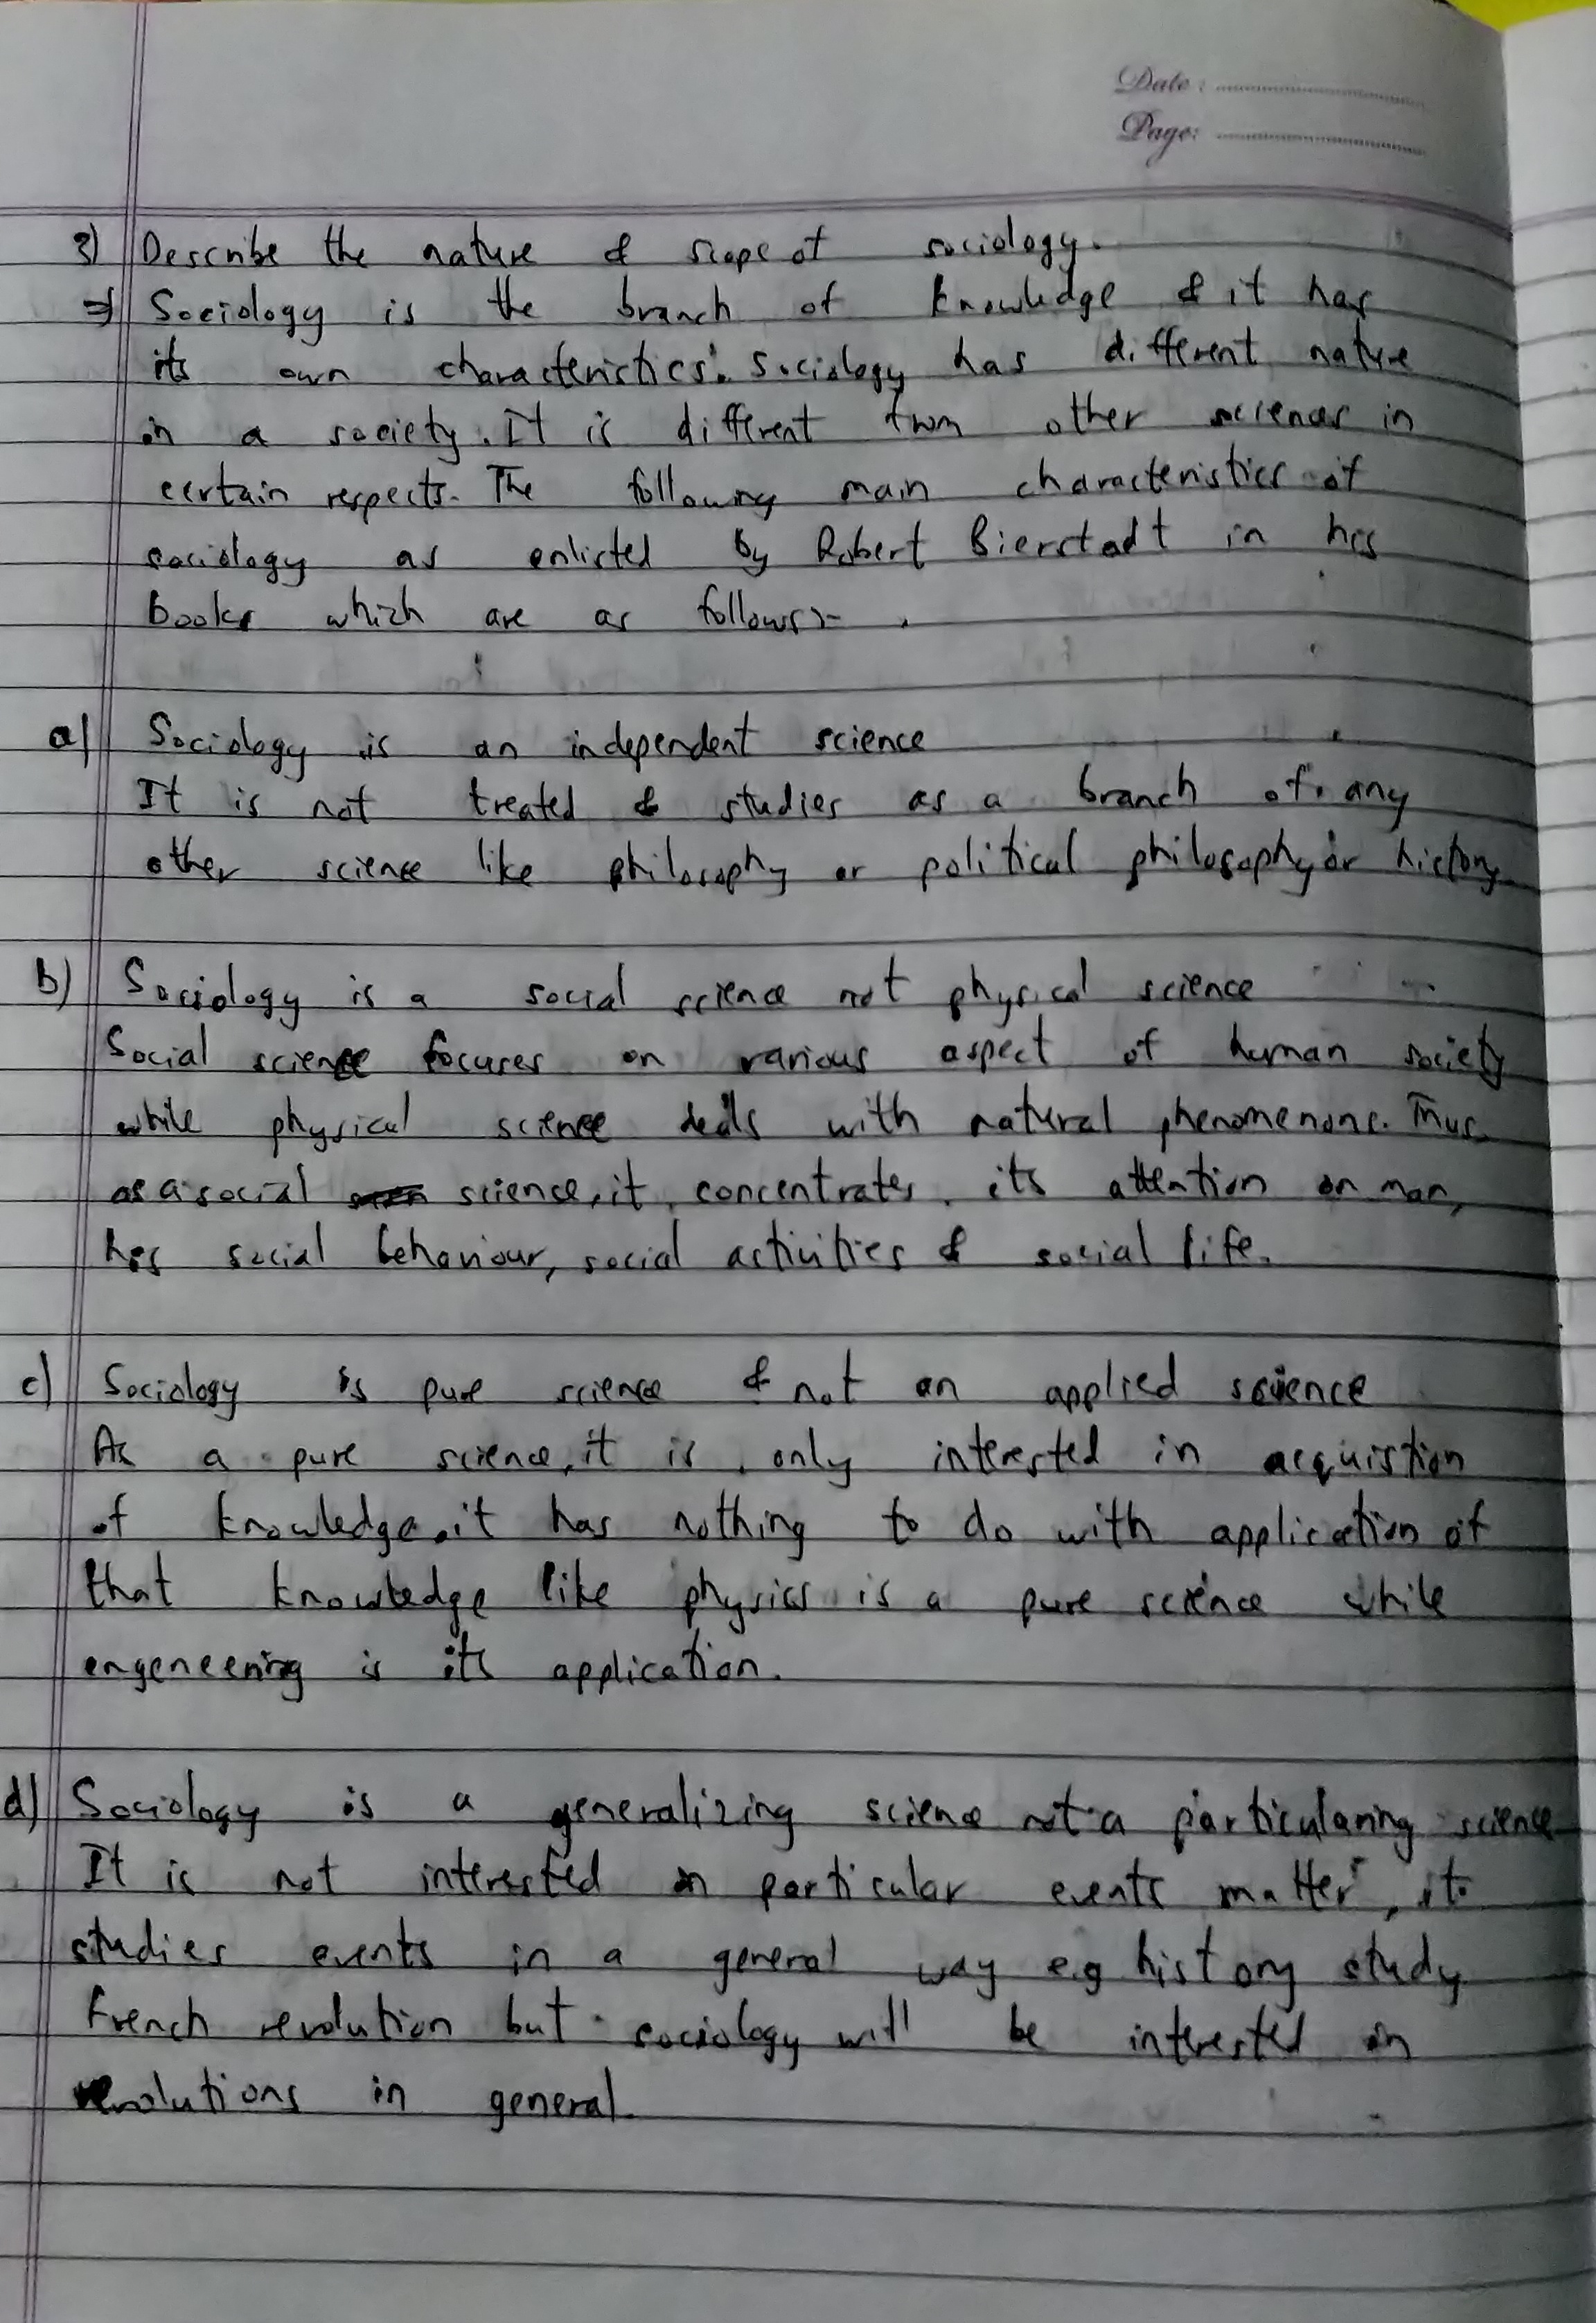 Date :
Page:
3) Describe the nature & scope of sociology.
⇒ Sociology is the branch of knowledge & it has
its own characteristics. Sociology has different nature
in a society. It is different from other sciences in
certain respects. The following main characteristics of
sociology as enlisted by Robert Bierstadt in his
books which are as follows:-
a) Sociology is an independent science
It is not treated & studies as a branch of any
other science like philosophy or political philosophy or history
b) Sociology is a social science not physical science
Social science focuses on various aspect of human society
while physical science deals with natural phenomenons. Thus
as a social science, it concentrates its attention on man,
his social behaviour, social activities & social life.
c) Sociology is pure science & not an applied science
As a pure science, it is only interested in acquistion
of knowledge, it has nothing to do with application of
that knowledge like physics is a pure science while
engeneering is its application.
d) Sociology is a generalizing science not a particularing science
It is not interested in particular events matter, it
studies events in a general way e.g history study
French revolution but sociology will be interested in
revolutions in general.